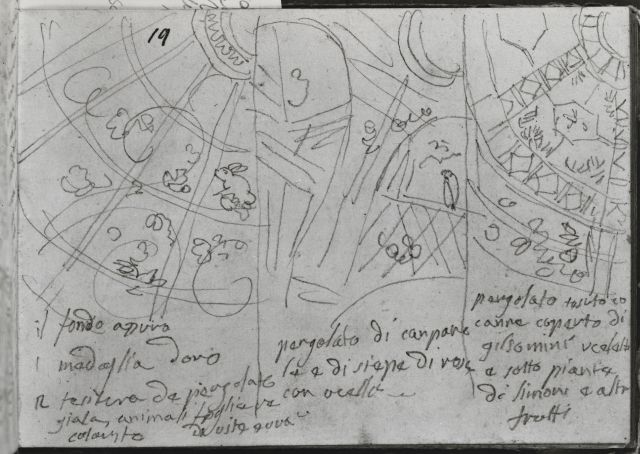 19
il fondo azuro
medaglia doro
tesitura de pergolato
giala, animali foglie ve
colorito di vite e uva
pergolato di canpane
le e di siepe di rose
con ocelli
pergolato tesuto co
canne coperto di
gilsomini ucelletti
e sotto piante
di limoni e altri
frutti